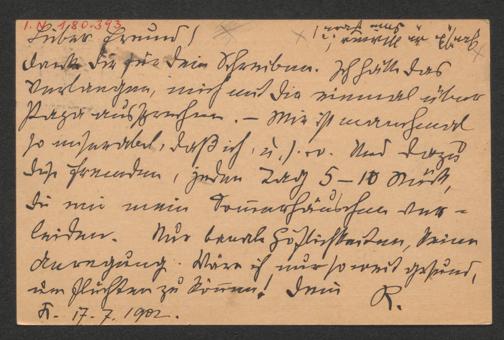 I.N. 180.393
Lieber Freund!
danke Dir für dein Schreiben. Ich hätte das
Verlangen, mich mit Dir einmal über
Papa auszusprechen. – Mir ist manchmal
so miserabel, daß ich, u.s.w. Und dazu
die Fremden, jeden Tag 5–10 Stück,
die mir mein Sommerhäuschen ver-
leiden. Nur banale Höflichkeiten, keine
Anregung. Wäre ich nur so weit gesund,
um flüchten zu können! Dein R.
K. 17.7.1902.